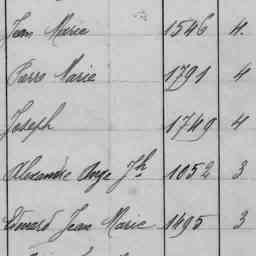 Jean Marie 1546 4.
Pierre Marie 1791 4
Joseph 1749 4
Alexandre Ange Jh 1052 3
Edouard Jean Marie 1495 3